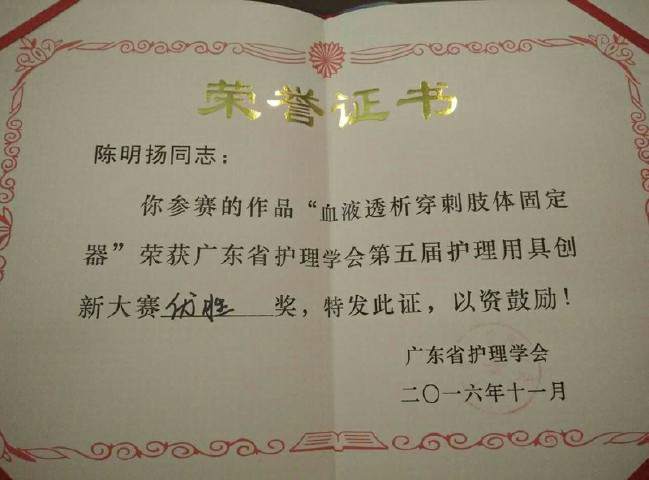 荣誉证书
陈明扬同志：
你参赛的作品“血液透析穿刺肢体固定
器”荣获广东省护理学会第五届护理用具创
新大赛优胜奖，特发此证，以资鼓励！
广东省护理学会
二〇一六年十一月